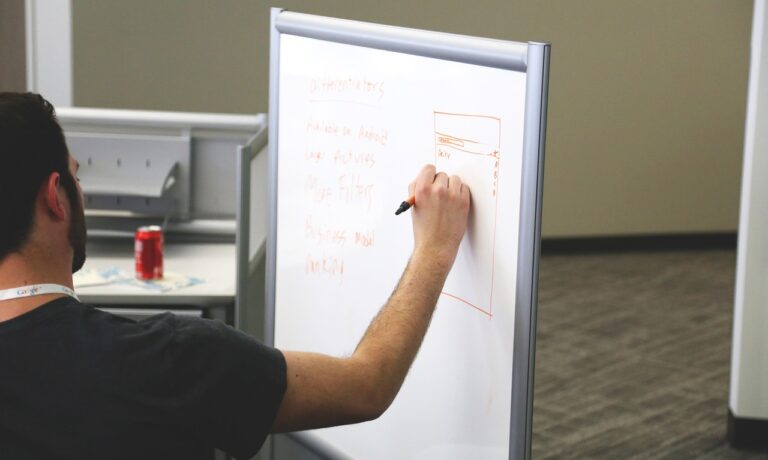 Differentiators
Available on Android
Larger Pictures
More Filters
Business Model
Ranking
Google